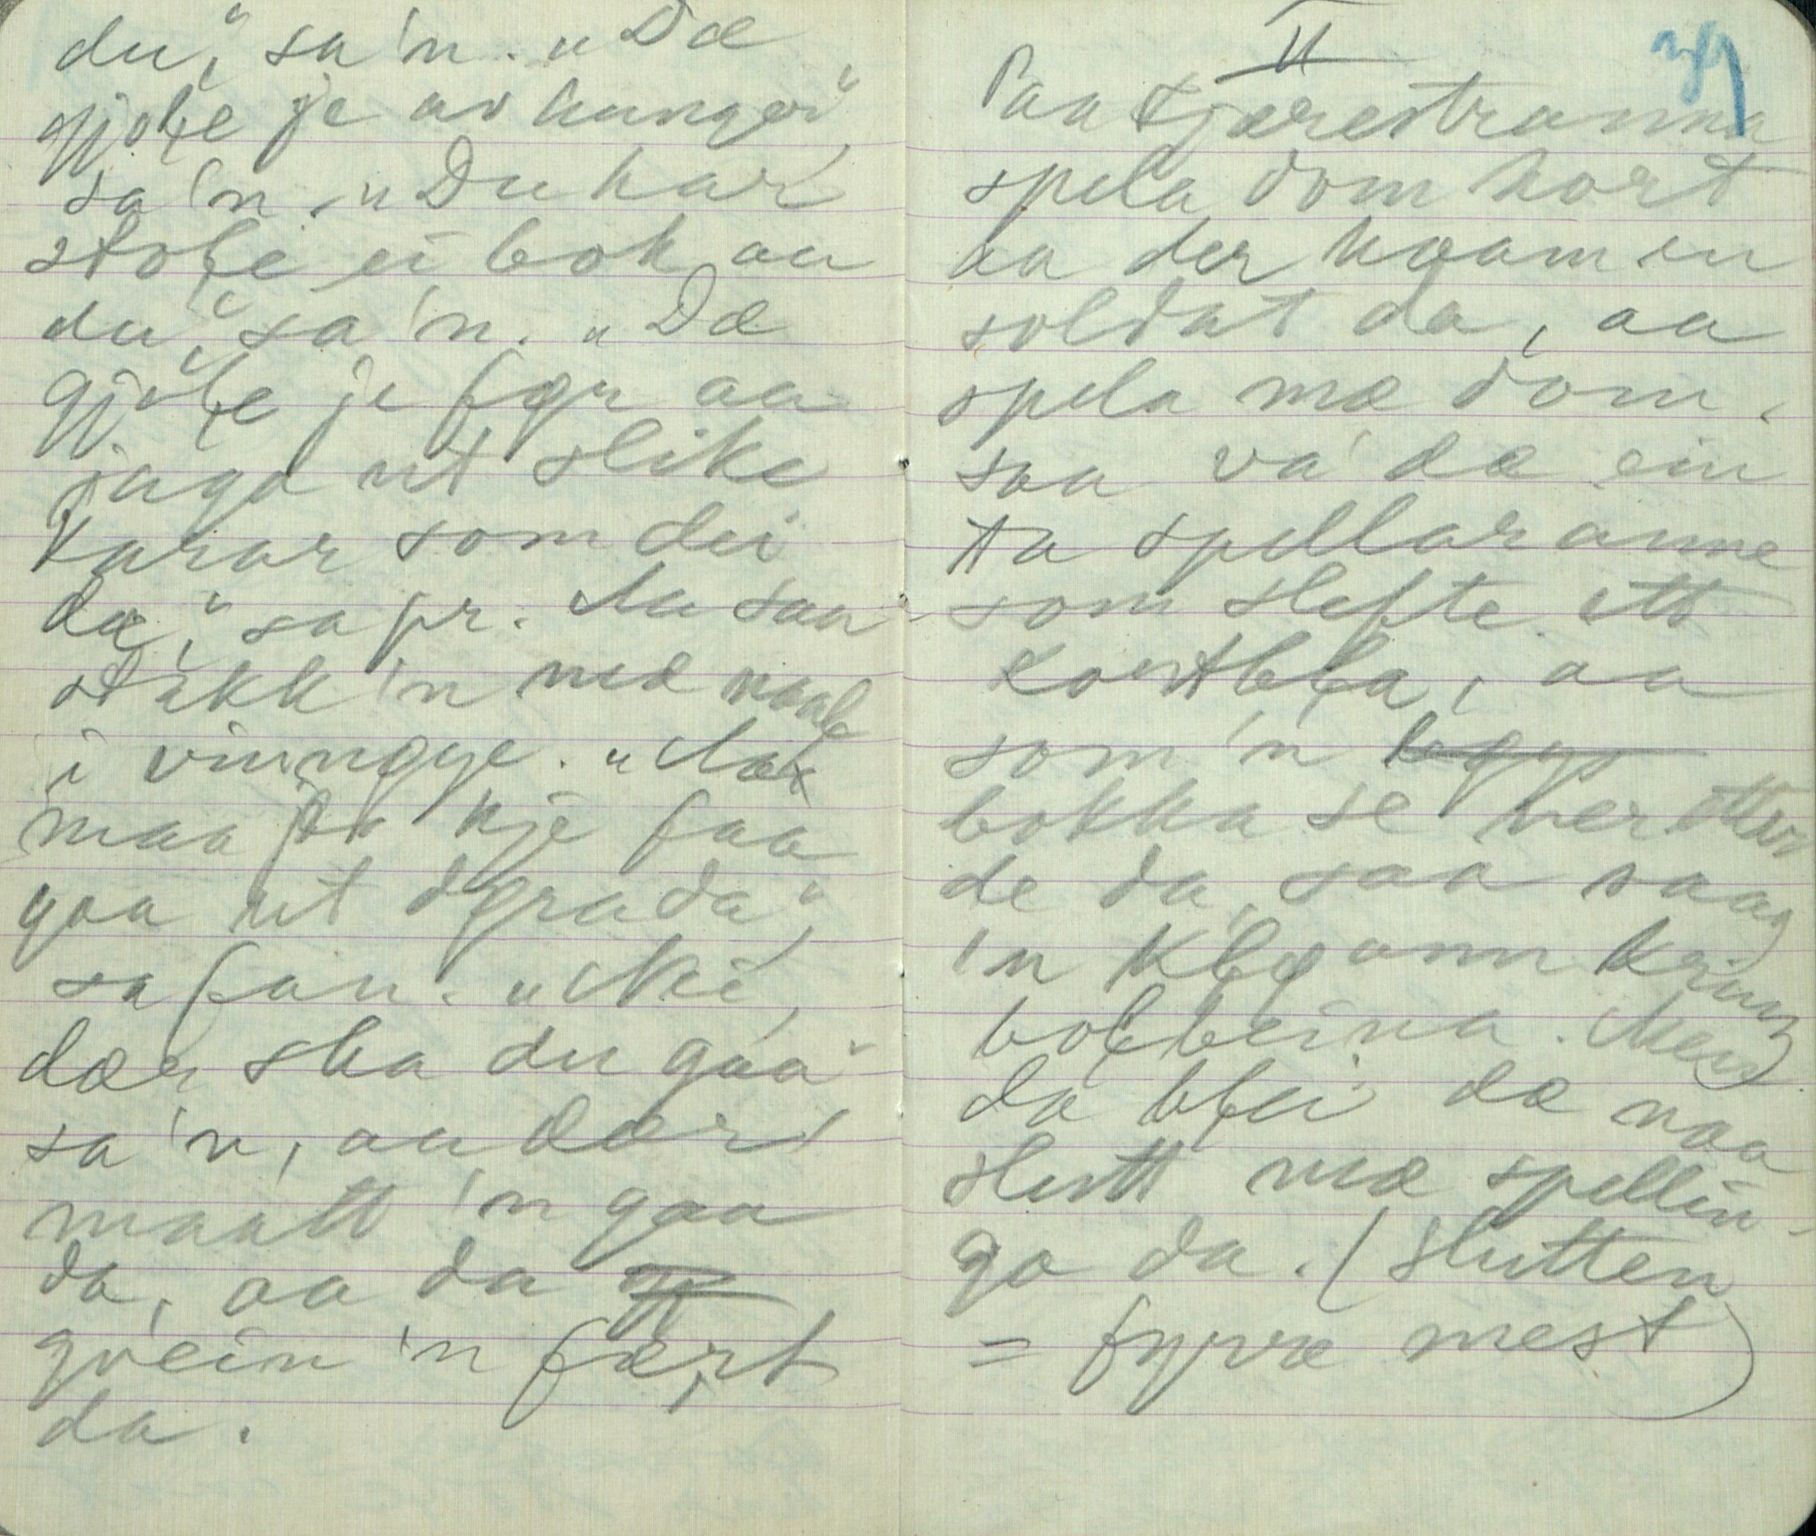 du," sa'n. "Dæ
gjole je av hunger,"
sa'n. "Du har
stole ei bok au
du," sa'n. "Dæ
gjole je før aa
jaga ut slike
karar som dei
dæ," sa pr. Aa saa
stakk'n mæ naale
i vinngje. "Næi
maa kje faa
gaa ut døra da,"
sa fan. "Nei,
dær ska du gaa"
sa'n, aa dær
maatt'n gaa
da, aa da
gvein'n fælt
da.
II
39
Paa Kjærestranna
spela dom kort
aa der kaam en
soldat da, aa
spela mæ dom.
saa va' dæ ein
ta spellaranne
som slefte ett
kortbla, aa
som'n
bokka se ner etter
de da, saa saag
'n kløann kring
bolbeina. Men
da blei dæ naa
slutt mæ spellin-
ga da. (Slutten
= fyrre mest)